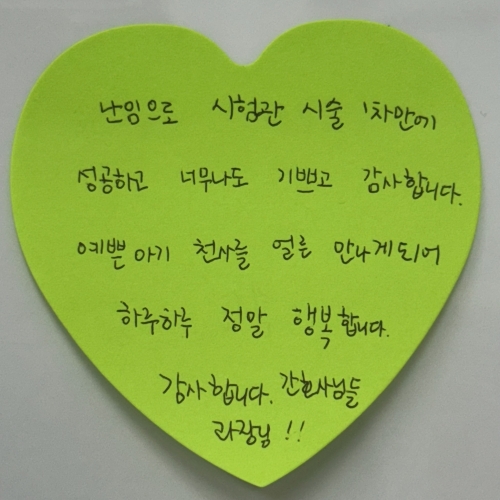 난임으로 시험관 시술 1차만에
성공하고 너무나도 기쁘고 감사합니다.
예쁜 아기 천사를 얼른 만나게되어
하루하루 정말 행복합니다.
감사합니다. 간호사님들
과장님!!